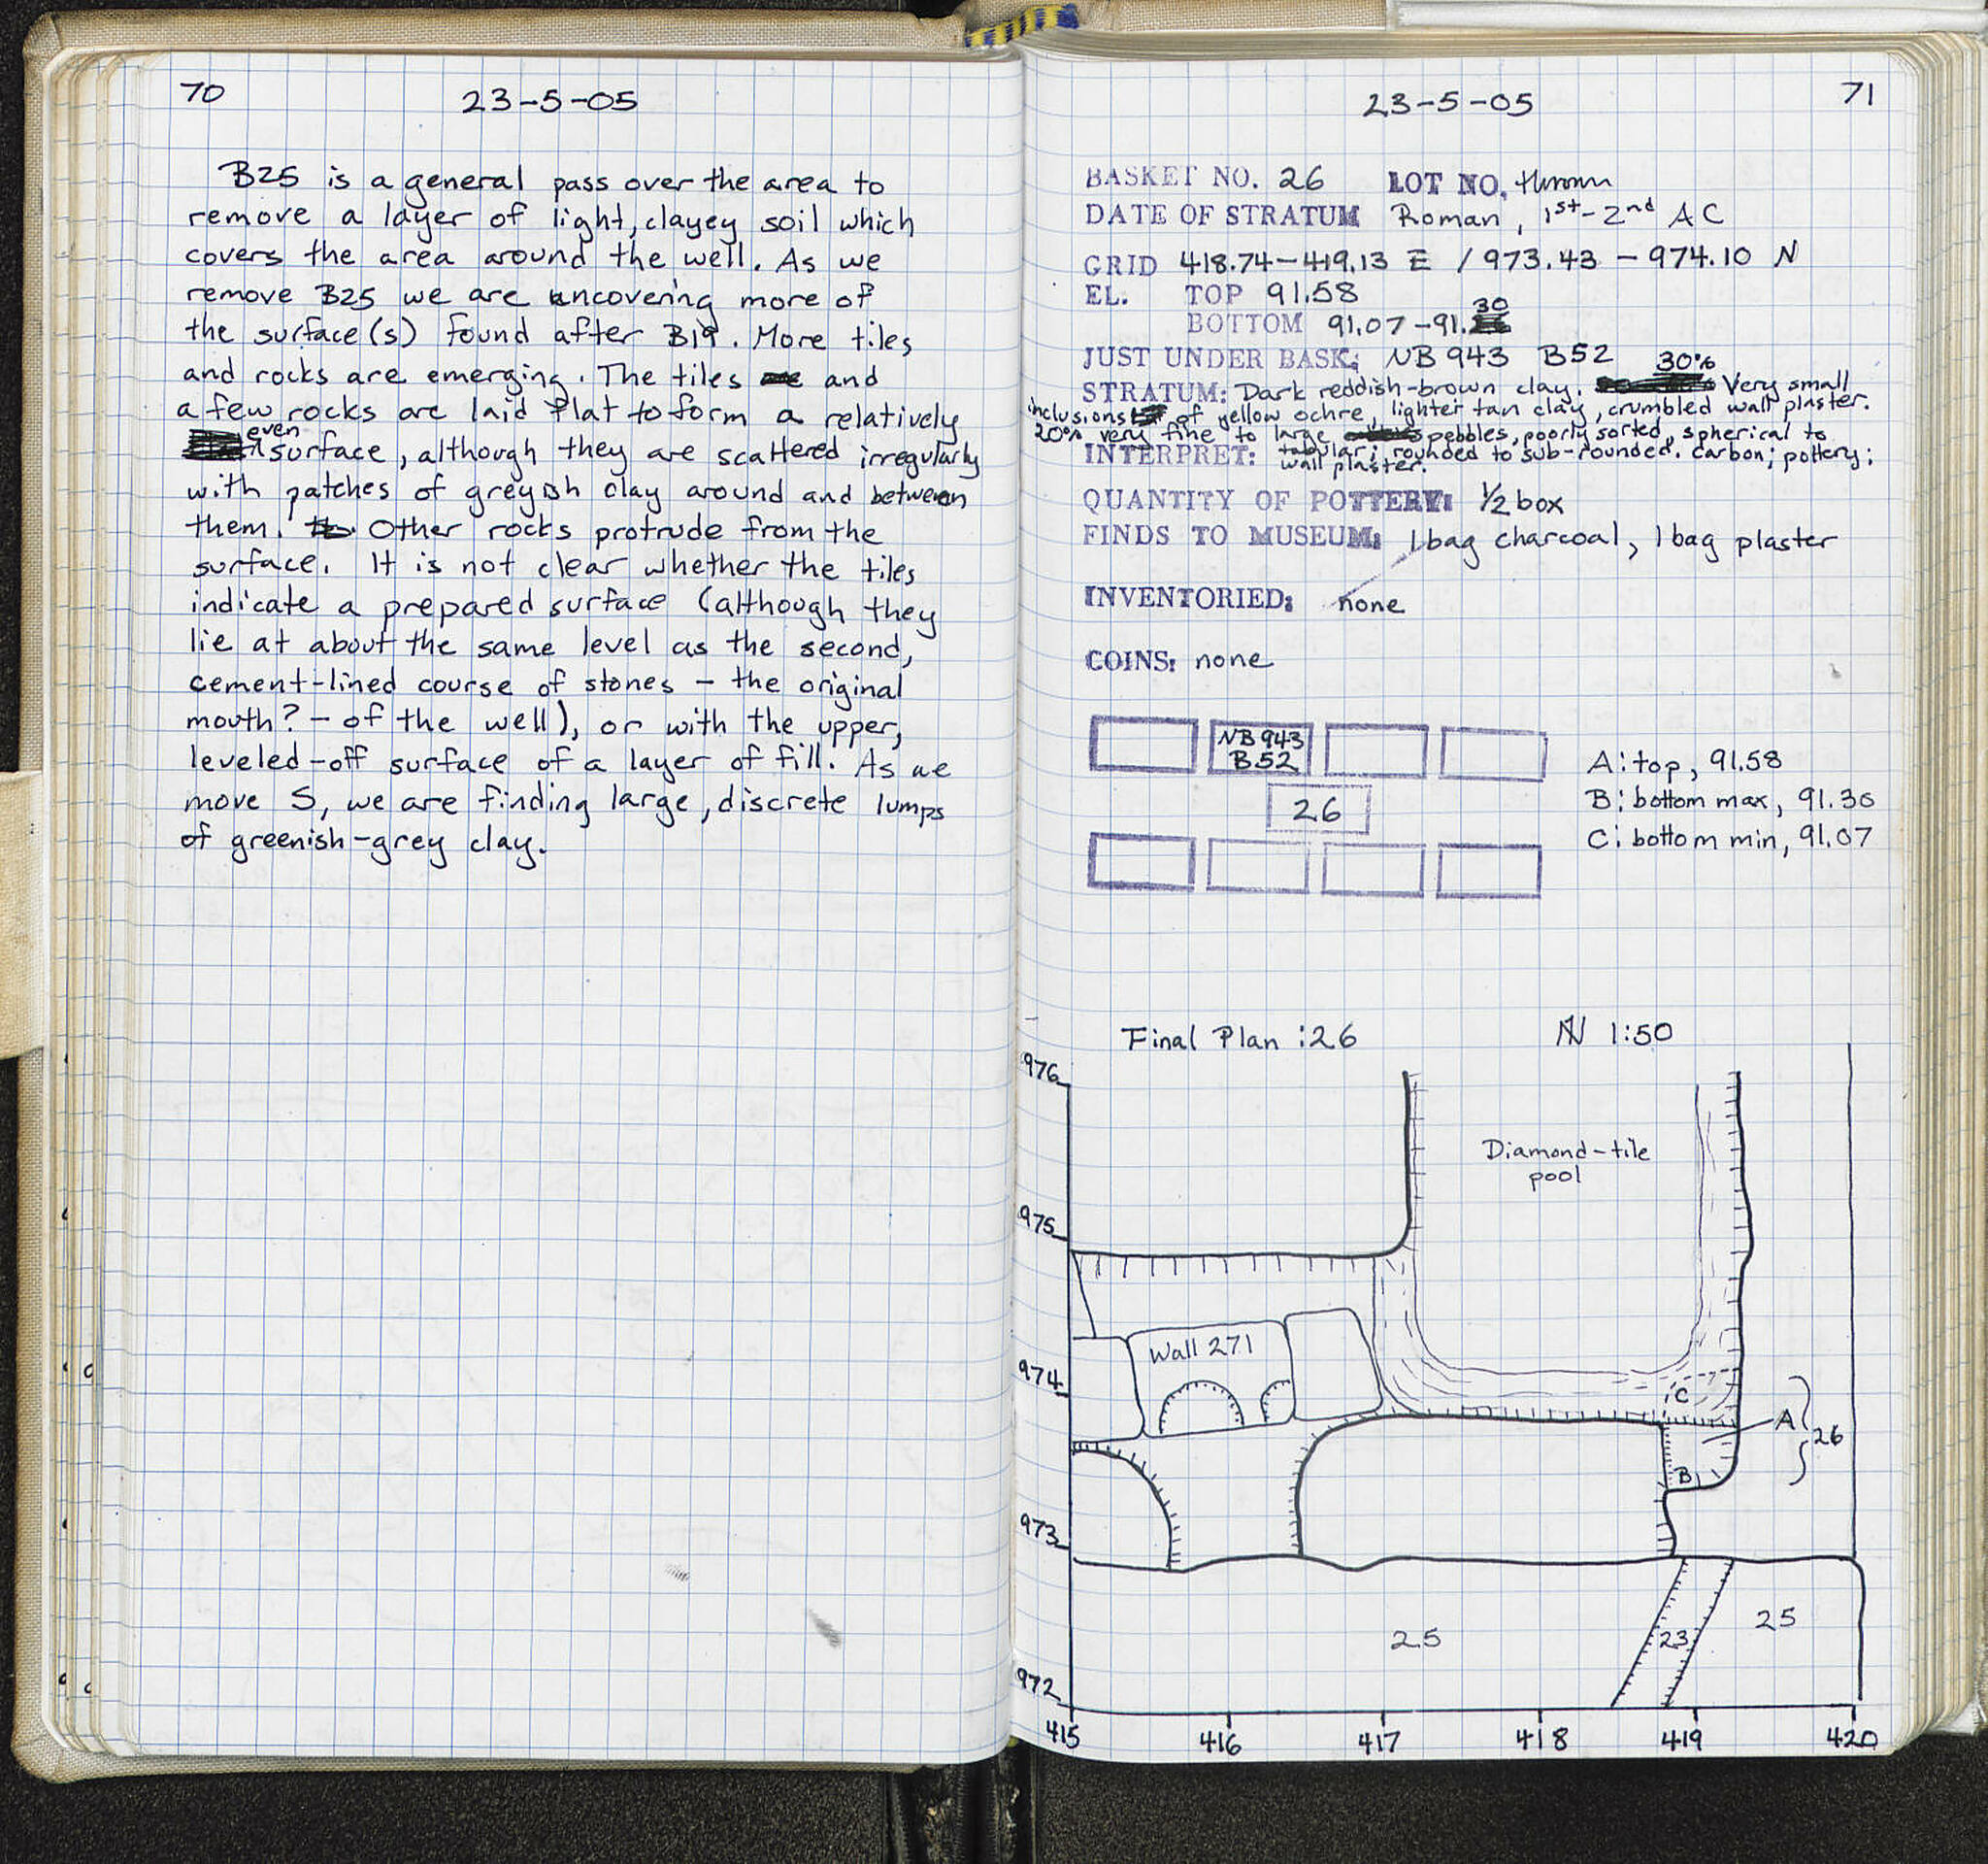 70
23-5-05
B25 is a general pass over the area to
remove a layer of light, clayey soil which
covers the area around the well. As we
remove B25 we are uncovering more of
the surface(s) found after B19. More tiles
and rocks are emerging. The tiles and
a few rocks are laid flat to form a relatively
even surface, although they are scattered irregularly
with patches of greyish clay around and between
them. Other rocks protrude from the
surface. It is not clear whether the tiles
indicate a prepared surface (although they
lie at about the same level as the second,
cement-lined course of stones – the original
mouth? – of the well), or with the upper,
leveled-off surface of a layer of fill. As we
move S, we are finding large, discrete lumps
of greenish-grey clay.
23-5-05
71
BASKET NO. 26 LOT NO. thrown
DATE OF STRATUM Roman, 1st-2nd AC
GRID 418.74-419.13 E / 973.43 - 974.10 N
EL. TOP 91.58
BOTTOM 91.07-91.30
JUST UNDER BASK: NB 943 B52
STRATUM: Dark reddish-brown clay. 30% Very small
inclusions of yellow ochre, lighter tan clay, crumbled wall plaster.
20% very fine to large pebbles, poorly sorted, spherical to
INTERPRET: tabular; rounded to sub-rounded. carbon; pottery;
wall plaster.
QUANTITY OF POTTERY: 1/2 box
FINDS TO MUSEUM: 1 bag charcoal, 1 bag plaster
INVENTORIED: none
COINS: none
NB 943
B52
26
A: top, 91.58
B: bottom max, 91.30
C: bottom min, 91.07
Final Plan : 26
N 1:50
976
Diamond-tile
pool
975
Wall 271
974
C
A
26
B
973
25
23
25
972
415 416 417 418 419 420